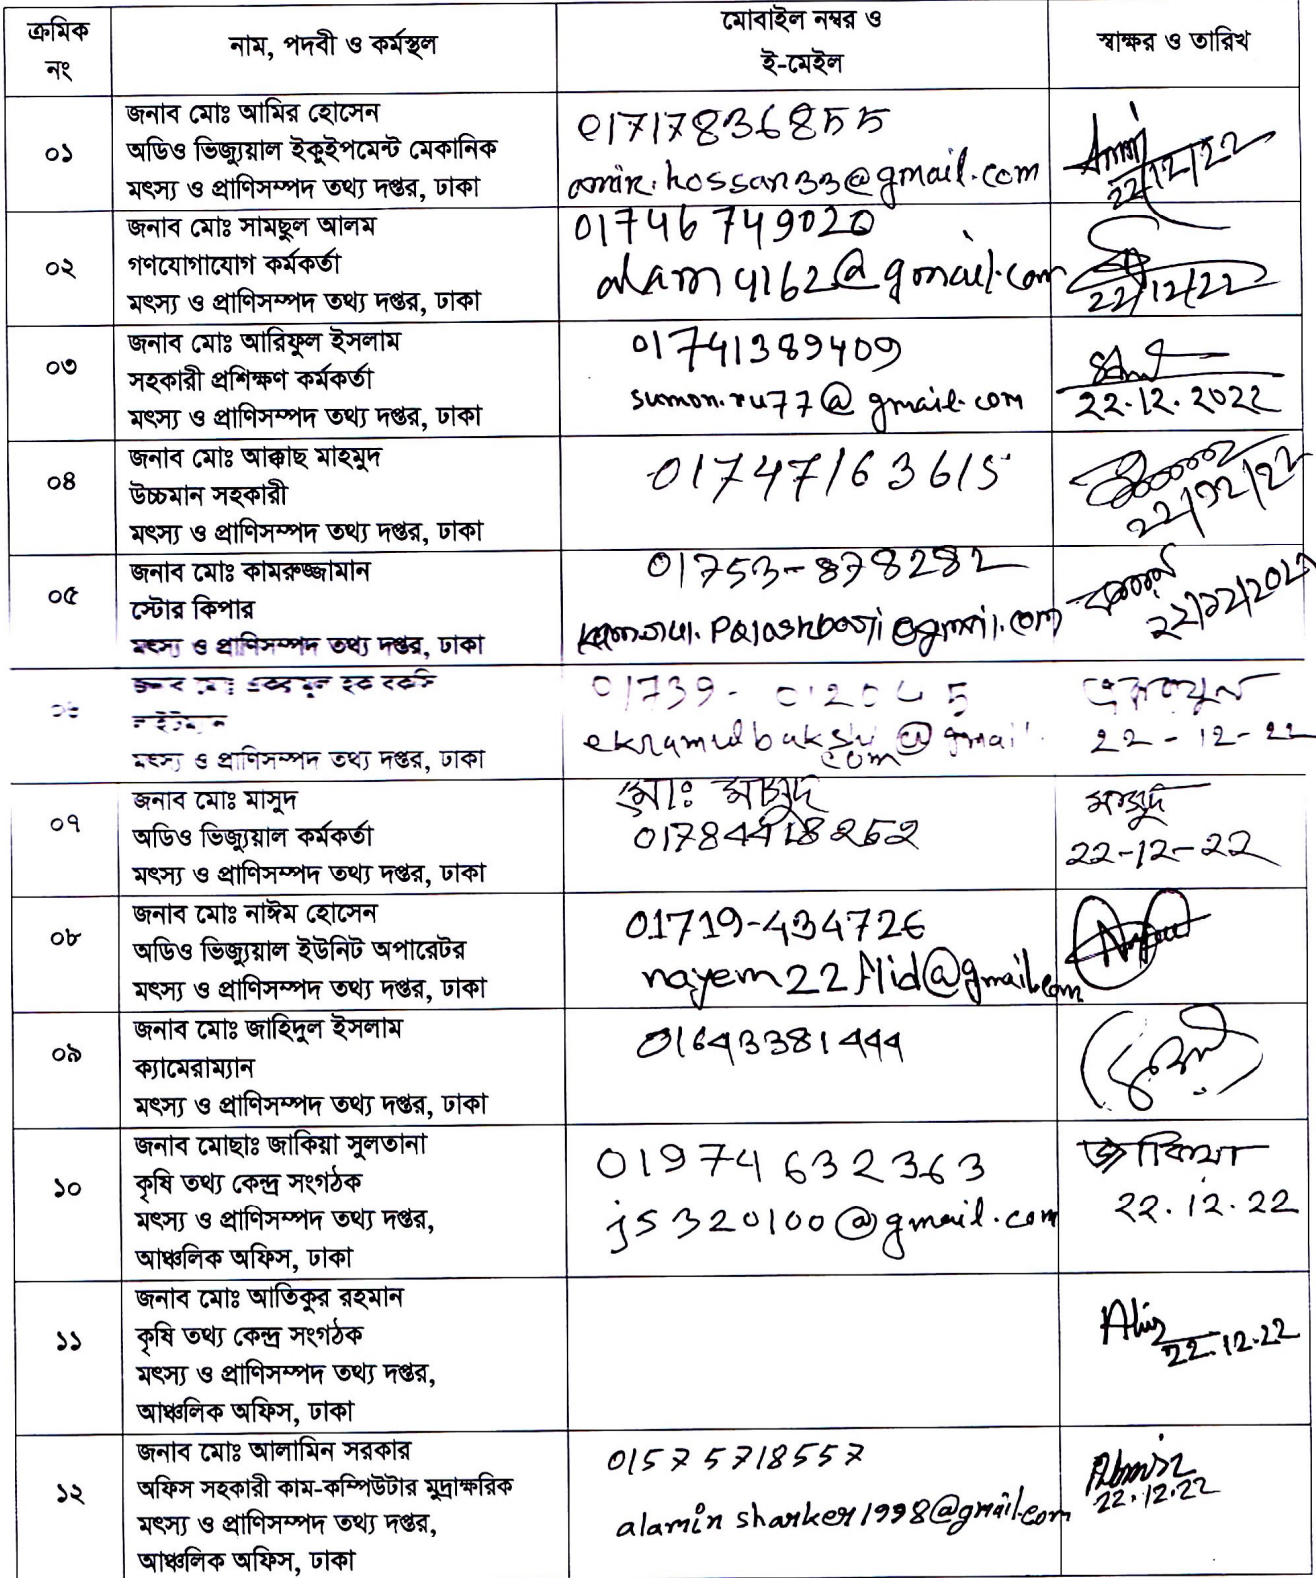 ক্রমিক
নং
নাম, পদবী ও কর্মস্থল
মোবাইল নম্বর ও
ই-মেইল
স্বাক্ষর ও তারিখ
০১
জনাব মোঃ আমির হোসেন
অডিও ভিজ্যুয়াল ইকুইপমেন্ট মেকানিক
মৎস্য ও প্রাণিসম্পদ তথ্য দপ্তর, ঢাকা
01717836855
amir.hossan33@gmail.com
22/12/22
০২
জনাব মোঃ সামছুল আলম
গণযোগাযোগ কর্মকর্তা
মৎস্য ও প্রাণিসম্পদ তথ্য দপ্তর, ঢাকা
01746749020
alam4162@gmail.com
22/12/22
০৩
জনাব মোঃ আরিফুল ইসলাম
সহকারী প্রশিক্ষণ কর্মকর্তা
মৎস্য ও প্রাণিসম্পদ তথ্য দপ্তর, ঢাকা
01741389409
sumon.ru77@gmail.com
22.12.2022
০৪
জনাব মোঃ আক্কাছ মাহমুদ
উচ্চমান সহকারী
মৎস্য ও প্রাণিসম্পদ তথ্য দপ্তর, ঢাকা
01747163615
22/12/22
০৫
জনাব মোঃ কামরুজ্জামান
স্টোর কিপার
মৎস্য ও প্রাণিসম্পদ তথ্য দপ্তর, ঢাকা
01753-878282
22/12/2022
মৎস্য ও প্রাণিসম্পদ তথ্য দপ্তর, ঢাকা
01739-
ekramulbakshi@gmail.
com
22-12-22
০৭
জনাব মোঃ মাসুদ
অডিও ভিজ্যুয়াল কর্মকর্তা
মৎস্য ও প্রাণিসম্পদ তথ্য দপ্তর, ঢাকা
মোঃ মাসুদ
মাসুদ
22-12-22
০৮
জনাব মোঃ নাঈম হোসেন
অডিও ভিজ্যুয়াল ইউনিট অপারেটর
মৎস্য ও প্রাণিসম্পদ তথ্য দপ্তর, ঢাকা
01719-434726
nayem22flid@gmail.com
০৯
জনাব মোঃ জাহিদুল ইসলাম
ক্যামেরাম্যান
মৎস্য ও প্রাণিসম্পদ তথ্য দপ্তর, ঢাকা
01643381444
১০
জনাব মোছাঃ জাকিয়া সুলতানা
কৃষি তথ্য কেন্দ্র সংগঠক
মৎস্য ও প্রাণিসম্পদ তথ্য দপ্তর,
আঞ্চলিক অফিস, ঢাকা
01974632363
js320100@gmail.com
জাকিয়া
22.12.22
১১
জনাব মোঃ আতিকুর রহমান
কৃষি তথ্য কেন্দ্র সংগঠক
মৎস্য ও প্রাণিসম্পদ তথ্য দপ্তর,
আঞ্চলিক অফিস, ঢাকা
22.12.22
১২
জনাব মোঃ আলামিন সরকার
অফিস সহকারী কাম-কম্পিউটার মুদ্রাক্ষরিক
মৎস্য ও প্রাণিসম্পদ তথ্য দপ্তর,
আঞ্চলিক অফিস, ঢাকা
01575718557
alaminsharker1998@gmail.com
22.12.22